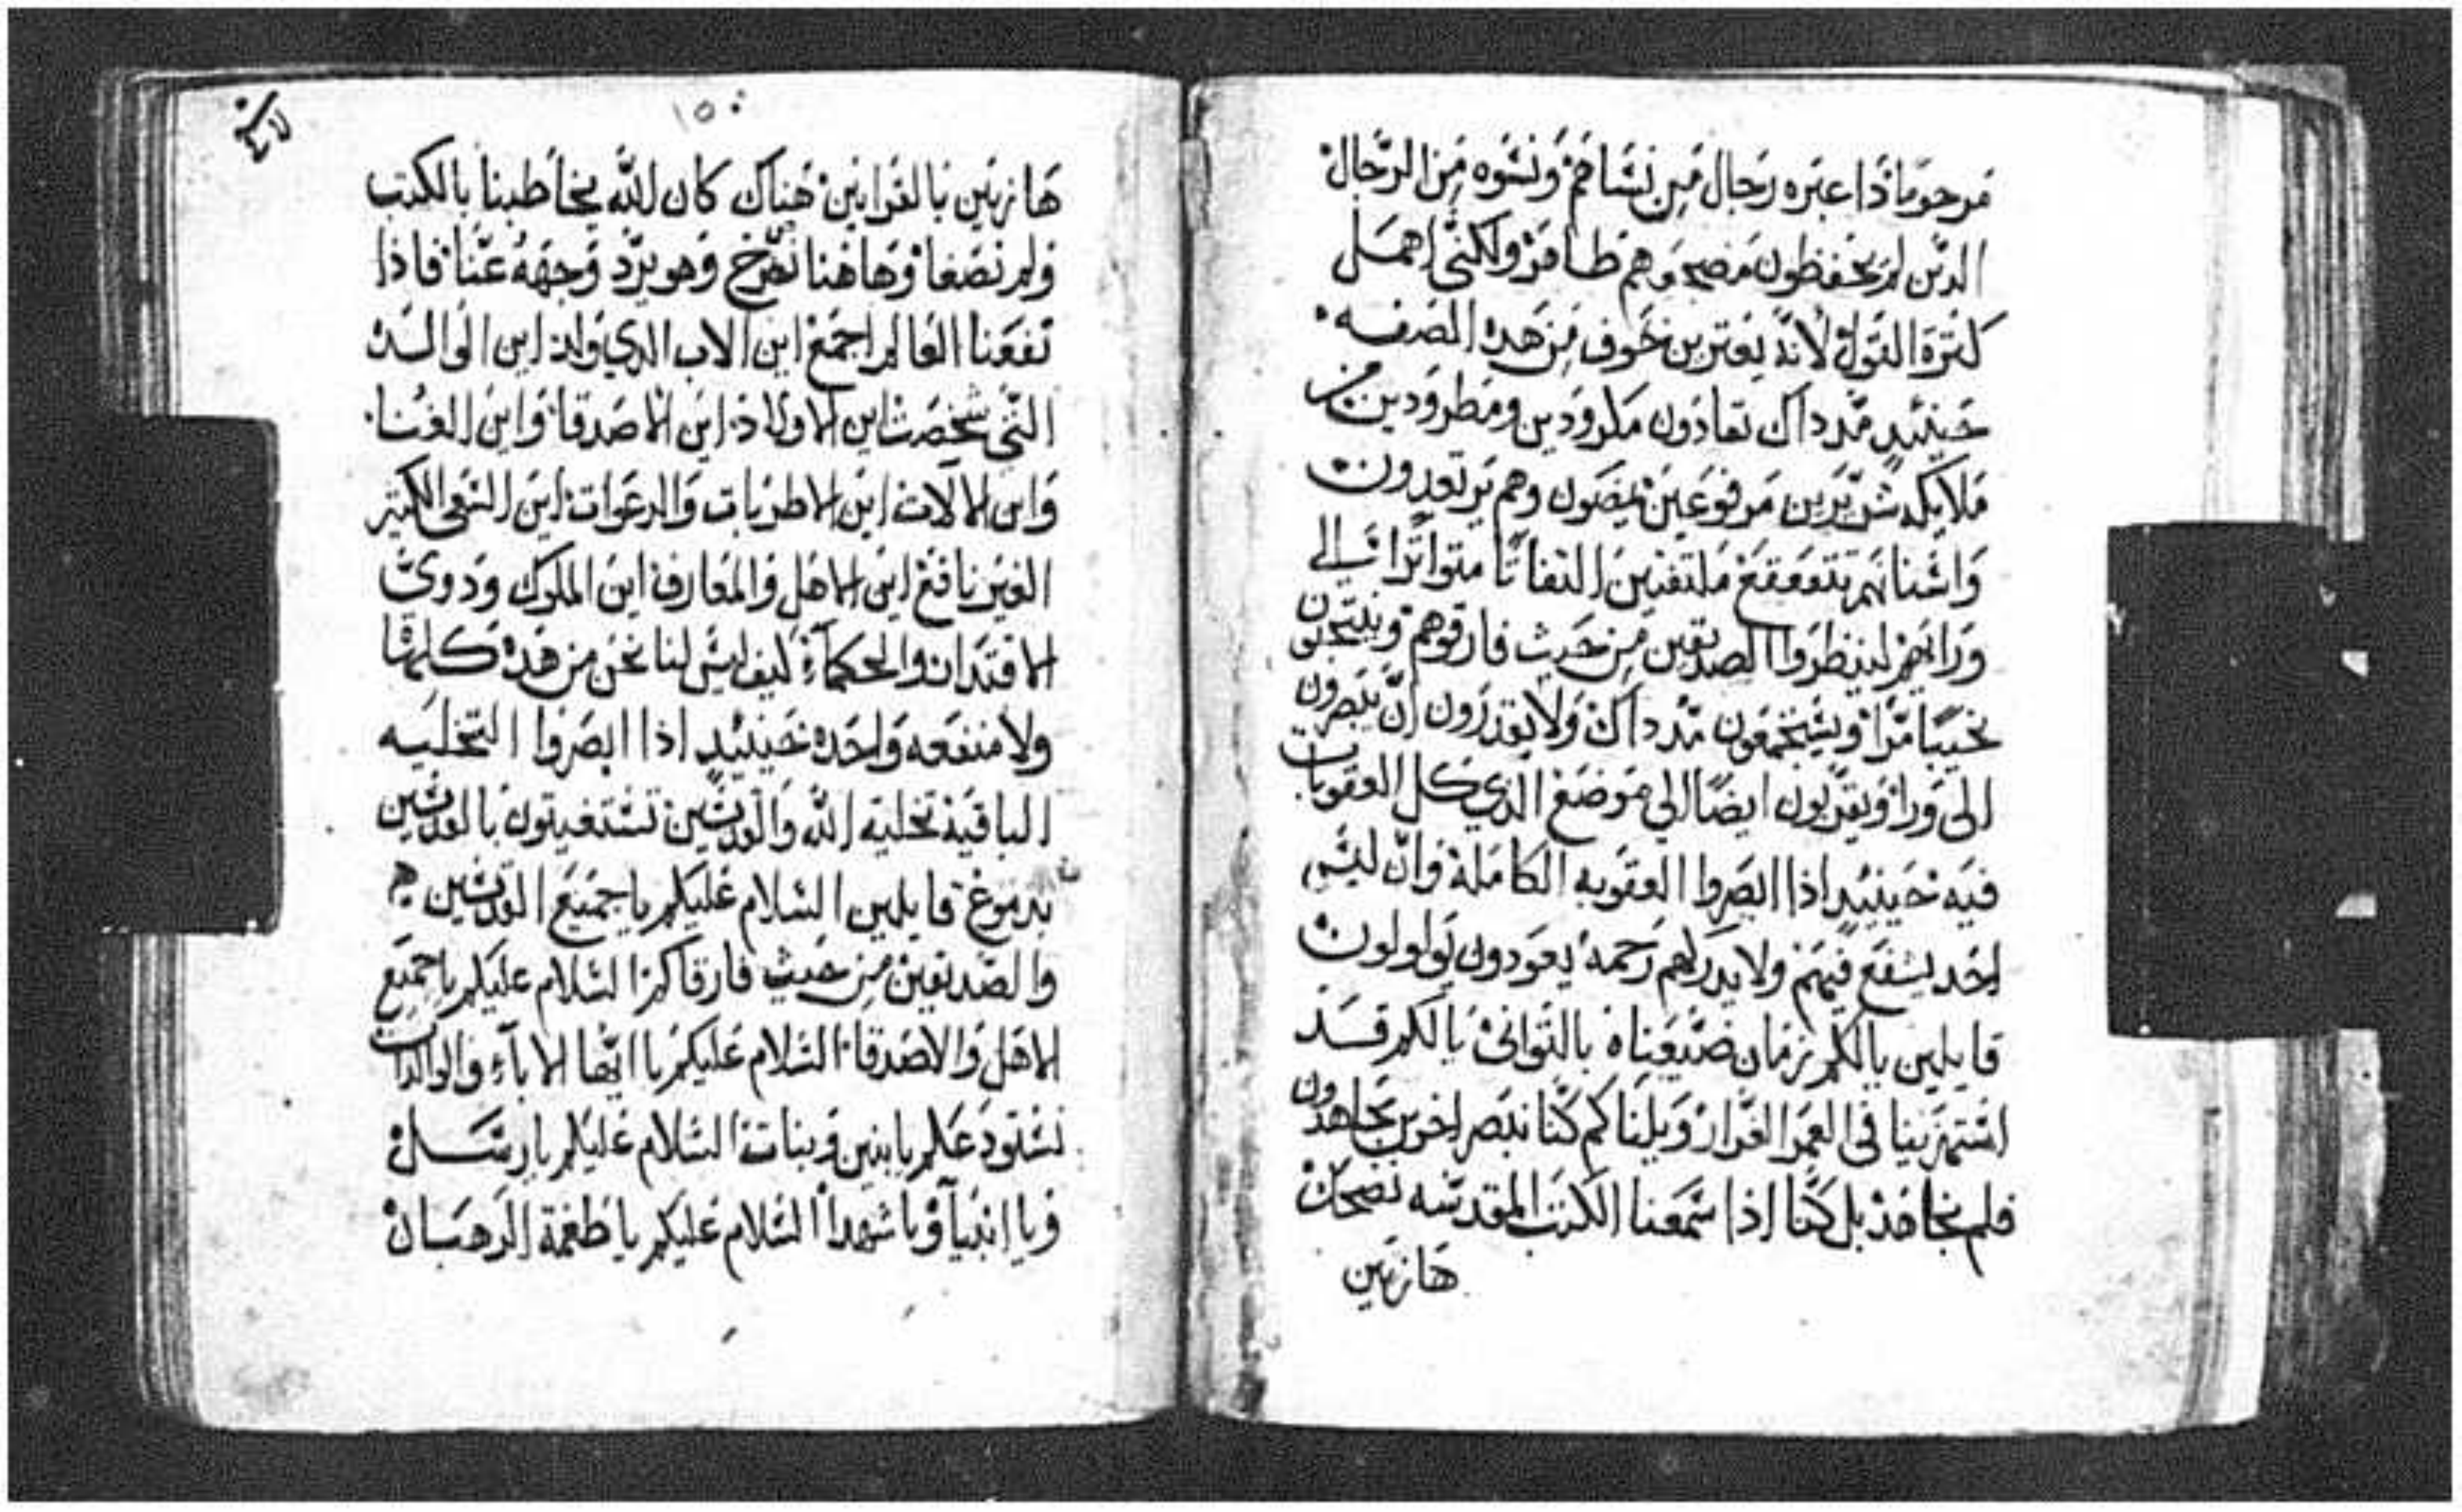 رجال من نسَاهم ونسوه من الرجال
الدين لم يحفظون مضجعهم طاهر ولكنى اهمل
كترة القول لانه يعترين خوف من هده الصفه
حينيد مند داك تعادون مكرودين ومطرودين من
ملايكه مرفوعين يمضون وهم يرتعدون
واسنانهم تتقعقع ملتفتين التفاتًا متواترًا الي
وراهم لينظروا الصديقين من حيث فارقوهم وينتحبون
نحيبًا مرًا مند داك ولا يقدرون ان يبصرون
الى ورا ويقربون ايضًا الي موضع الدي كل العقوبات
فيه حينيد اذا ابصروا العقوبه الكاملة وان ليس
احد يشفع فيهم ولا يدركهم رحمة يعودون يولولون
قايلين يالكم زمان ضيعناه بالتوانى يالكم قد
استهزينا فى العمر الغرار ويلنا كم كنا نبصر اخرين يجاهدون
فلم نجاهد بل كنا اذا سمعنا الكتب المقدسه نضحك
هازيين
١٥٠
هازيين بالقوانين هناك كان الله يخاطبنا بالكتب
ولم نصغا وهاهنا نصرخ وهو يرد وجهه عنا فاذا
نفعنا العالم اجمع اين الاب الدي ولد اين الوالده
التى شخصت اين الاولاد اين الاصدقا واين الغنا
واين الالات اين الاطربات والدعوات اين السعى الكتير
الغير نافع اين الاهل والمعارف اين الملوك ودوى
الاقتدار والحكماء كيف ليس لنا نحن من هده كلها
ولا منفعه واحده حينيد اذا ابصروا التخلية
الباقية تخلية الله والقديسين تستغيتون بالقديسين
بدموع قايلين السلام عليكم ياجميع القديسين
والصديقين من حيث فارقاكم السلام عليكم ياجميع
الاهل والاصدقا السلام عليكم يا ايها الاباء والوالدات
نستودعكم يا بنين وبنات السلام عليكم يا رسل
ويا انبيا ويا شهدا السلام عليكم يا طغمة الرهبان